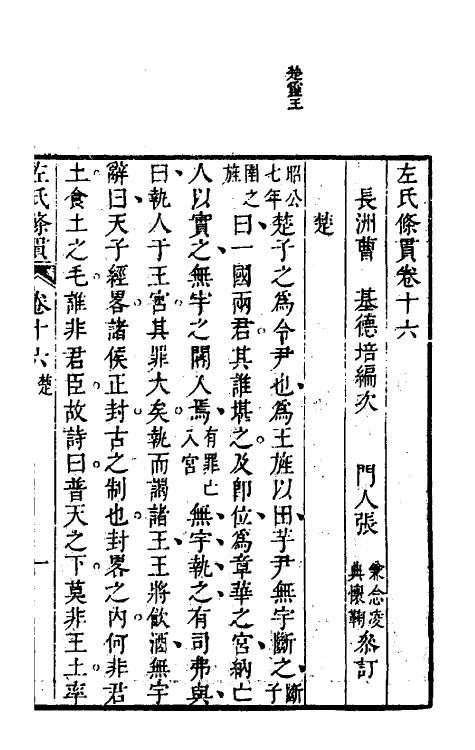 楚靈王
左氏條貫卷十六
長洲曹　基德培編次　門人張　兼念淩　典懷鞠　叅訂
楚
昭公七年楚子之爲令尹也爲王旌以田芋尹無宇斷之斷子
閏之旌曰一國兩君其誰堪之及卽位爲章華之宮納亡
人以實之無宇之閽入焉有罪亡入宮無宇執之有司弗與
曰執人于王宮其罪大矣執而謁諸王王將飮酒無宇
辭曰天子經畧諸侯正封古之制也封畧之內何非君
土食土之毛誰非君臣故詩曰普天之下莫非王土率
左氏條貫　卷十六　楚　一